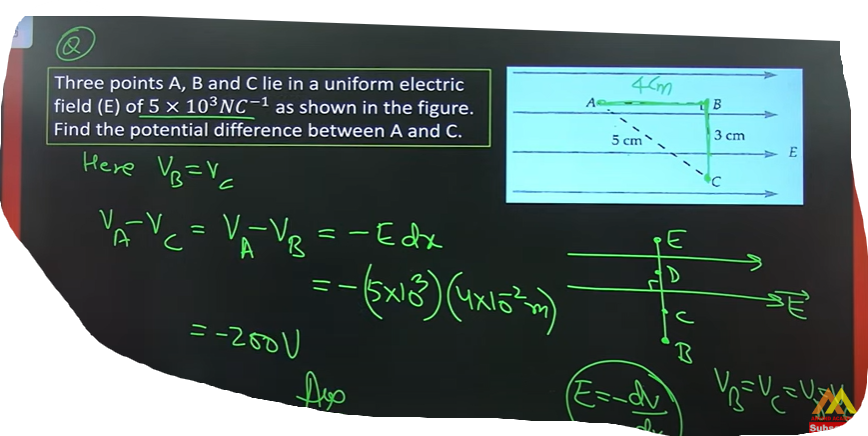 Q
Three points A, B and C lie in a uniform electric
field (E) of 5 × 10³NC⁻¹ as shown in the figure.
Find the potential difference between A and C.
4cm
A
B
5 cm
3 cm
E
C
Here V_B = V_C
V_A - V_C = V_A - V_B = -E dx
= -(5×10³)(4×10⁻²m)
= -200V
Ans
E
D
E⃗
C
B
E = -dv/dx
V_B = V_C = V
Subsc